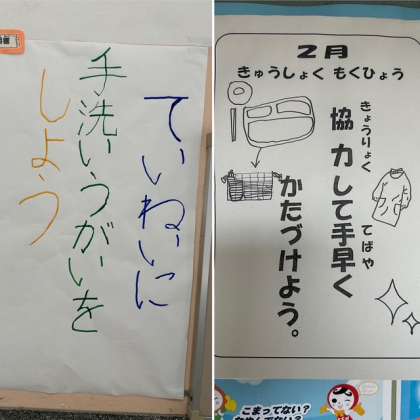 ていねいに
手洗いうがいを
しよう
2月
きゅうしょく もくひょう
きょうりょく
協力して手早く
てばや
かたづけよう。
こまってない?